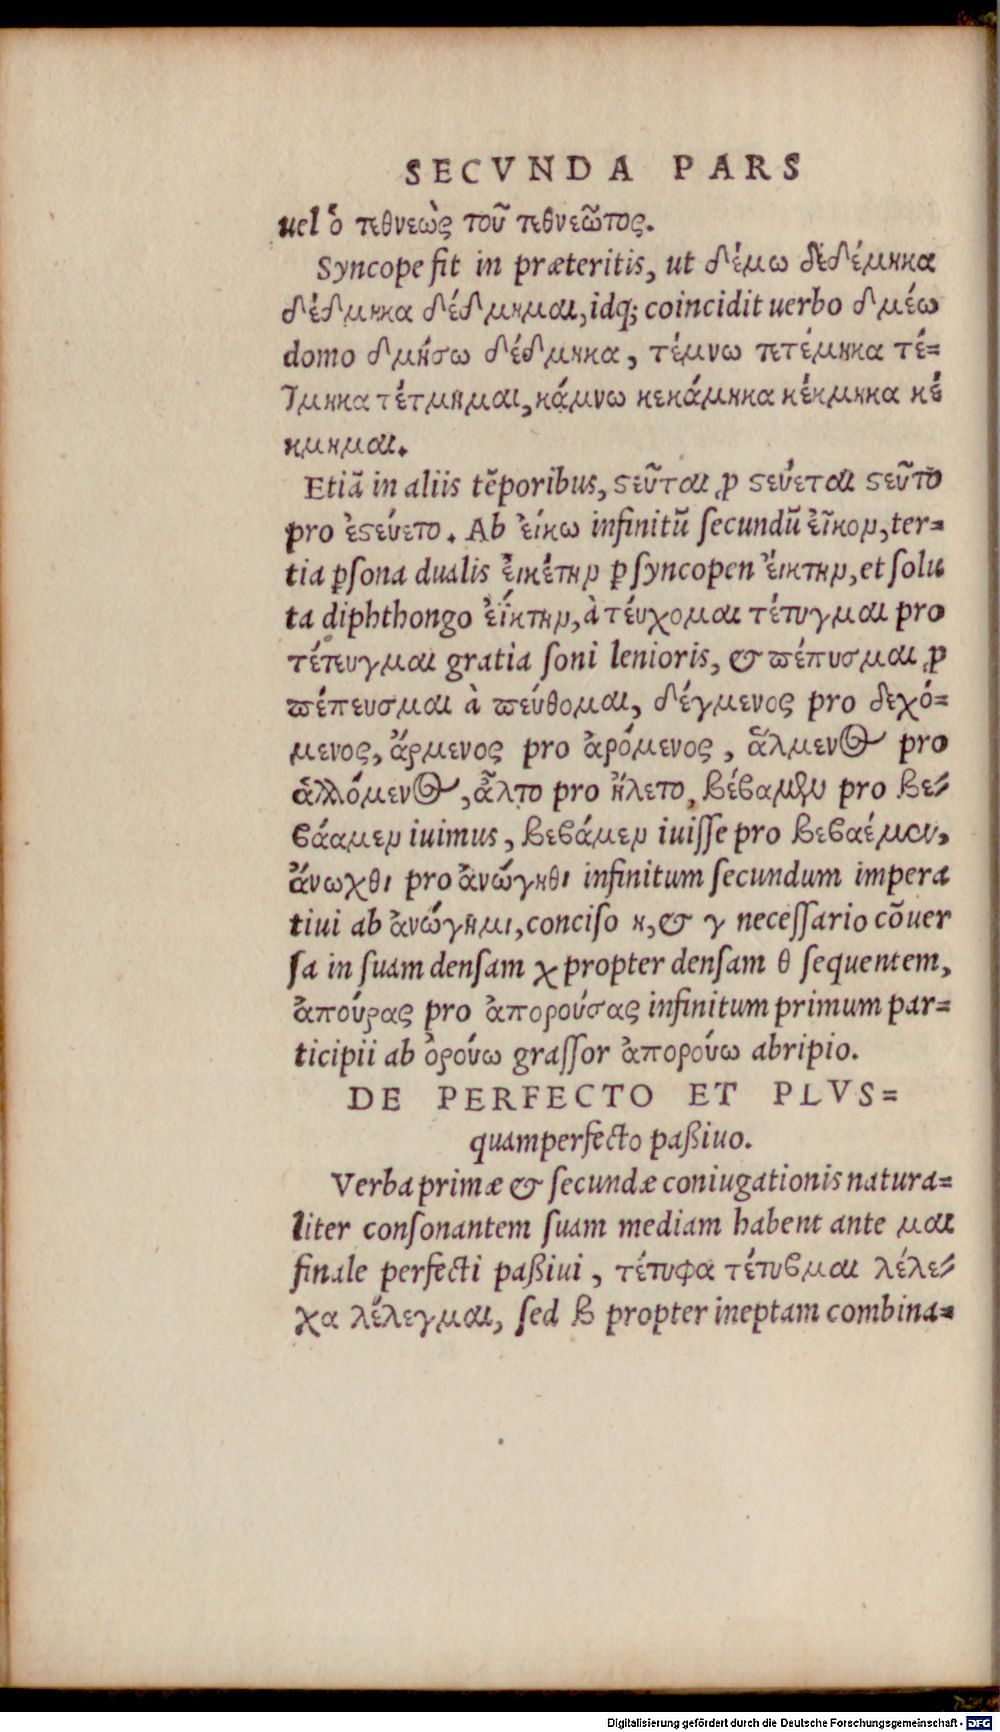 SECVNDA PARS
uel ὁ τεθνεὼς τοῦ τεθνεῶτος.
Syncope fit in præteritis, ut δέμω δεδέμηκα
δέδμηκα δέδμημαι, idq; coincidit uerbo δμέω
domo δμήσω δέδμηκα, τέμνω τετέμηκα τέ=
τμηκα τέτμημαι, κάμνω κεκάμηκα κέκμηκα κέ
κμημαι.
Etiã in aliis tẽporibus, ϛεῦται ꝓ ϛεύεται ϛεῦτο
pro ἐϛεύετο. Ab ἐίκω infinitũ secundũ εἶκον, ter=
tia ꝑsona dualis ἐικέτην ꝑ syncopen ἐίκτην, et solu
ta diphthongo ἐΐκτην, à τέυχομαι τέτυγμαι pro
τέτευγμαι gratia soni lenioris, & πέπυσμαι ꝓ
πέπευσμαι à πεύθομαι, δέγμενος pro δεχό=
μενος, ἄρμενος pro ἀρόμενος, ἅλμενος pro
ἁλλόμενος, ἆλτο pro ἤλετο, βέβαμεν pro βε=
βάαμεν iuimus, βεβάμεν iuisse pro βεβαέμεν,
ἄνωχθι pro ἀνώγηθι infinitum secundum impera
tiui ab ἀνώγημι, conciso η, & γ necessario cõuer
sa in suam densam χ propter densam θ sequentem,
ἀπούρας pro ἀπορούσας infinitum primum par=
ticipii ab ὀρούω grassor ἀπορούω abripio.
DE PERFECTO ET PLVS=
quamperfecto paßiuo.
Verba primæ & secundæ coniugationis natura=
liter consonantem suam mediam habent ante μαι
finale perfecti paßiui, τέτυφα τέτυβμαι λέλε=
χα λέλεγμαι, sed β propter ineptam combina=
Digitalisierung gefördert durch die Deutsche Forschungsgemeinschaft - DFG